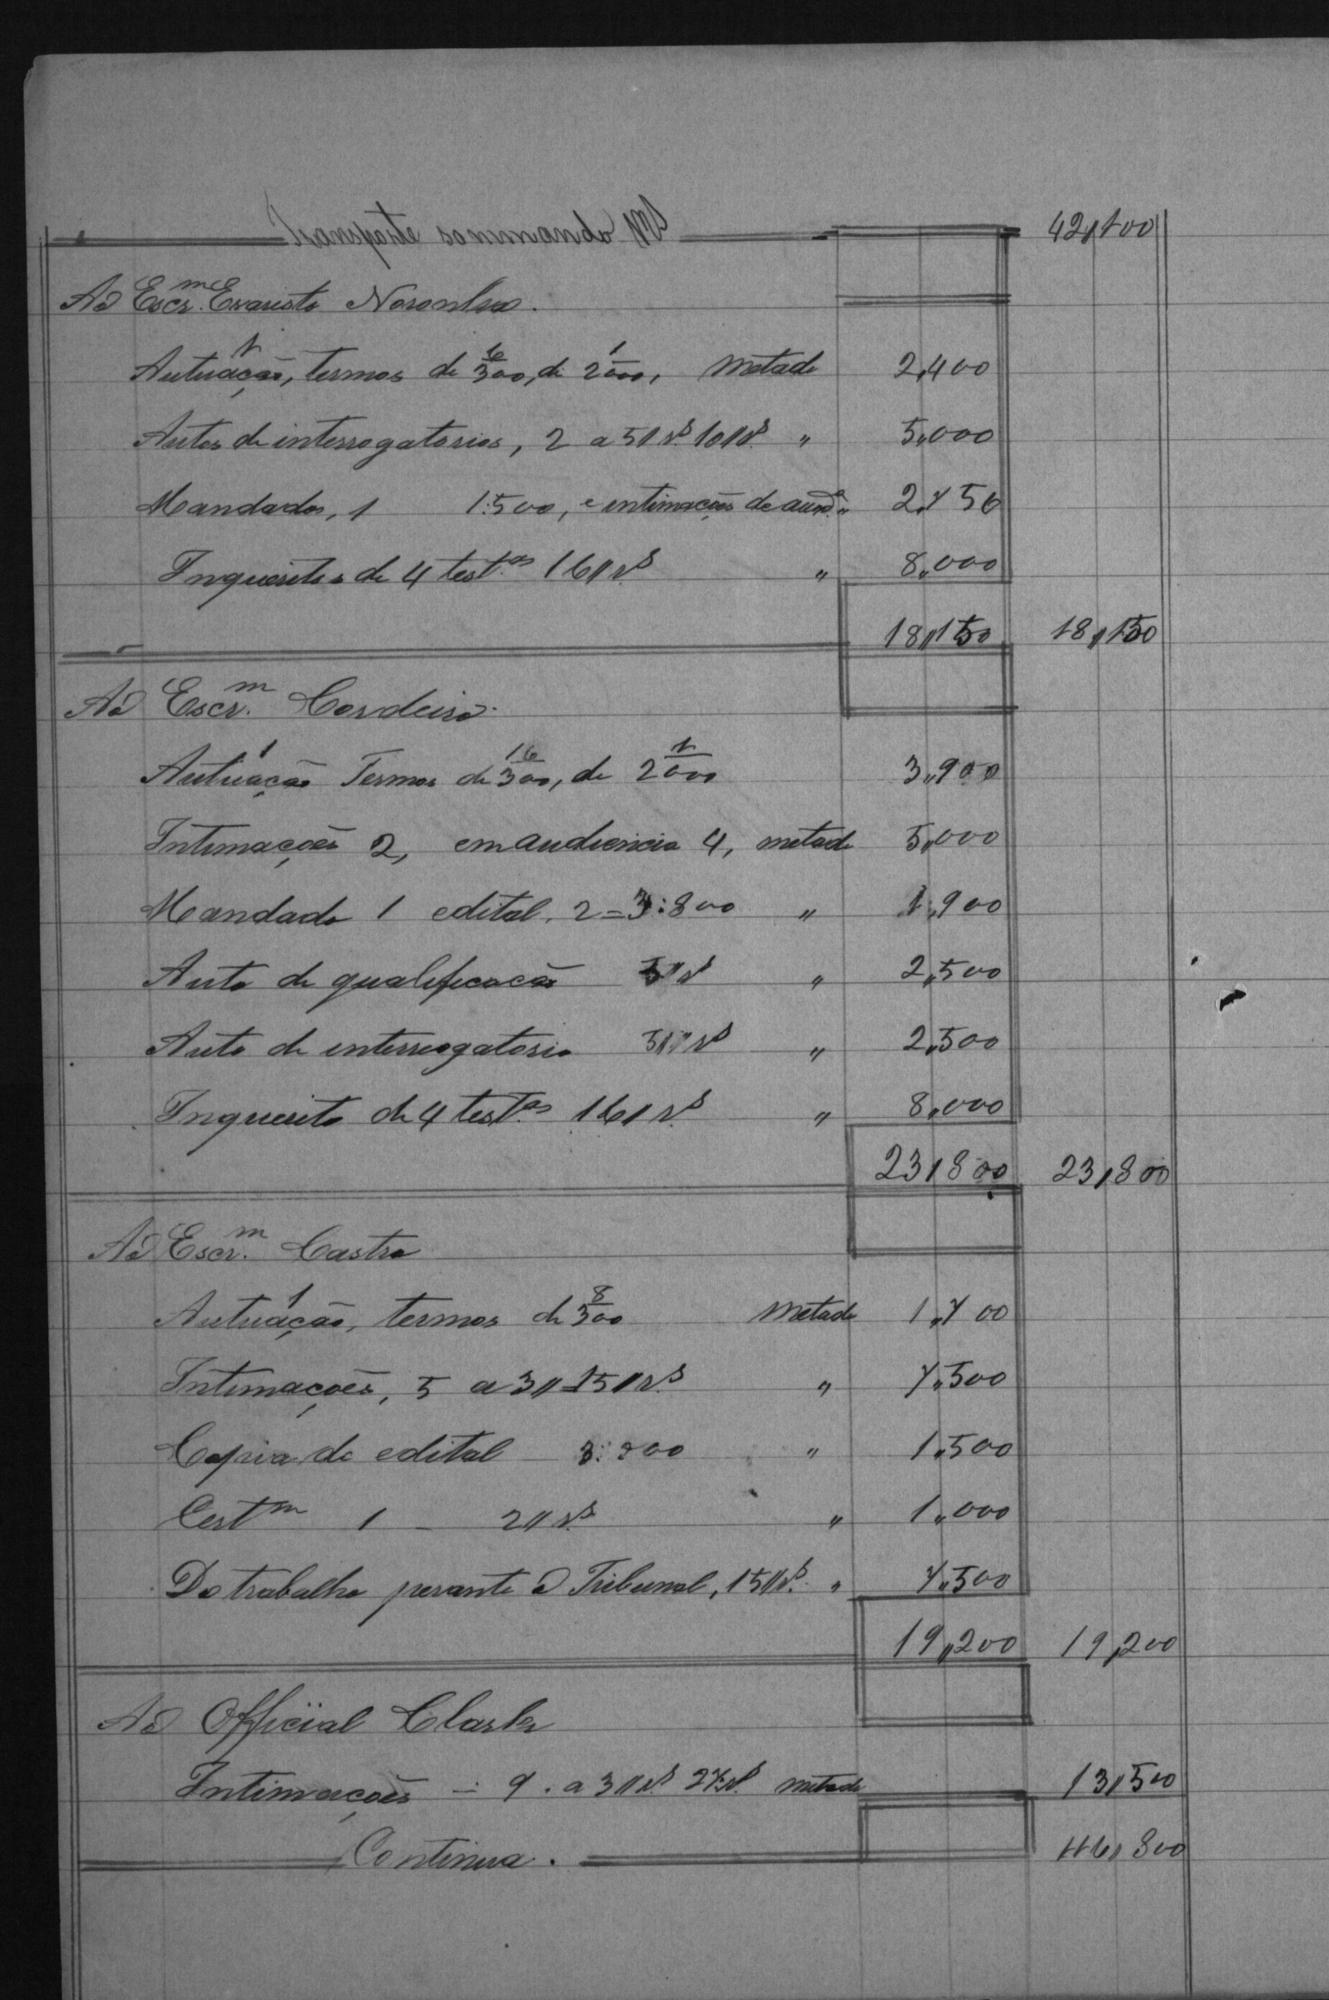 Transporte sommando Rs 42,100
Ao Escr.m Evaristo Noronha.
Autuação, 1 termos de 6/300, de 1/2000, Metade 2,400
Autos de interrogatorios, 2 a 5$rs. 10$rs. " 5,000
Mandados, 1 1:500, e intimações de aud.a " 2,750
Inquerito de 4 test.as 16$rs " 8,000
18,150 18,150
Ao Escr.m Cordeiro.
Autuação 1 Termos de 16/300, de 1/2000 3,900
Intimações 2, em audiencia 4, metade 5,000
Mandado 1 edital. 2=3:800 " 1,900
Auto de qualificação 5$rs " 2,500
Auto de interrogatorio 5$rs " 2,500
Inquerito de 4 test.as 16$rs. " 8,000
23,800 23,800
Ao Escr.m Castro
Autuação, 1 termos de 8/300 Metade 1,700
Intimações, 5 a 3$=15$rs. " 7,500
Copia de edital 3:000 " 1,500
Cert.m 1 – 2$rs. " 1,000
Do trabalho perante o Tribunal, 15$rs. " 7,500
19,200 19,200
Ao Official Clark
Intimações – 9. a 3$rs. 27$rs. metade 13,500
Continua. 116,800